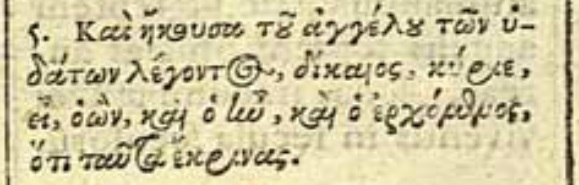 5. Καὶ ἤκουσα τοῦ ἀγγέλου τῶν ὑ-
δάτων λέγοντος, δίκαιος, κύριε,
εἶ, ὁ ὢν, καὶ ὁ ἦν, καὶ ὁ ἐρχόμενος,
ὅτι ταῦτα ἔκρινας.